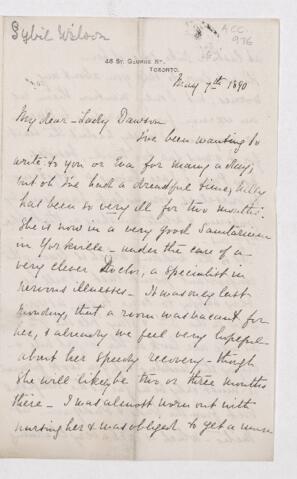 Sybil Wilson
ACC.
976
48 ST. GEORGE ST.
TORONTO.
May 7th 1890
My dear Lady Dawson
I've been wanting to
write to you or Eva for many a day,
but oh I've had a dreadful time,
has been so very ill for two months.
She is now in a very good Sanitarium
in Yorkville - under the care of a
very clever Doctor, a specialist in
nervous illnesses - It was only last
Monday, that a room was vacant for
her, & already we feel very hopeful
about her speedy recovery - though
she will likely be two or three months
there - I was almost worn out with
nursing her & was obliged to get a nurse